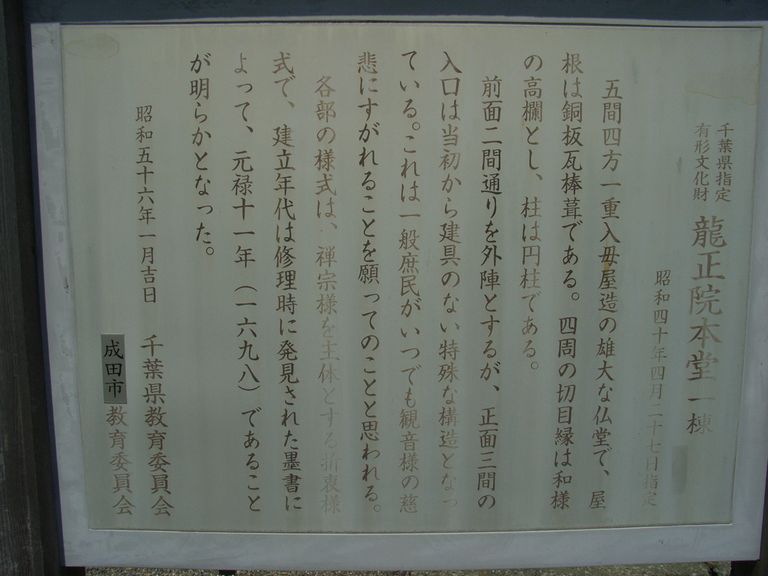 千葉県指定
有形文化財
龍正院本堂一棟
昭和四十年四月二十七日指定
五間四方一重入母屋造の雄大な仏堂で、屋
根は銅板瓦棒葺である。四周の切目縁は和様
の高欄とし、柱は円柱である。
前面二間通りを外陣とするが、正面三間の
入口は当初から建具のない特殊な構造となっ
ている。これは一般庶民がいつでも観音様の慈
悲にすがれることを願ってのことと思われる。
各部の様式は、禅宗様を主体とする折衷様
式で、建立年代は修理時に発見された墨書に
よって、元禄十一年（一六九八）であること
が明らかとなった。
昭和五十六年一月吉日
千葉県教育委員会
成田市教育委員会